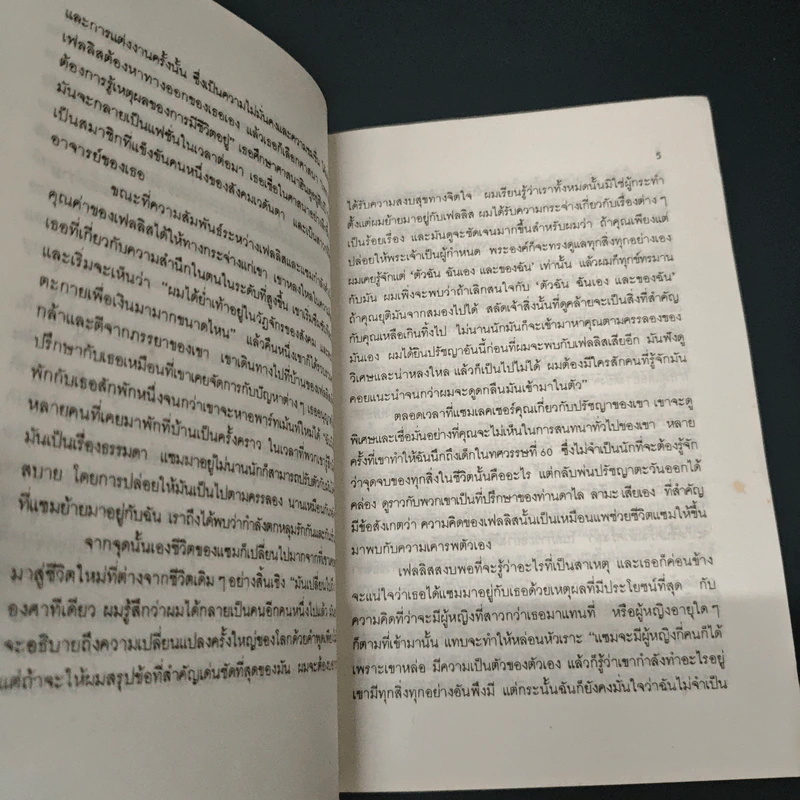 และการแต่งงานครั้งนั้น ซึ่งเป็นความไม่มั่นคงและความขมขื่น
เฟลลิสต้องหาทางออกของเธอเอง แล้วเธอก็เลือกศาสนา
ต้องการรู้เหตุผลของการมีชีวิตอยู่" เธอศึกษาศาสนาฮินดู
มันจะกลายเป็นแฟชั่นในเวลาต่อมา เธอเชื่อในศาสนา
เป็นสมาชิกที่แข็งขันคนหนึ่งของสังคมเวดันตา และเป็น
อาจารย์ของเธอ
ขณะที่ความสัมพันธ์ระหว่างเฟลลิสและแซมกำลัง
คุณค่าของเฟลลิสได้ให้ทางกระจ่างแก่เขา เขาหลงใหลใน
เธอที่เกี่ยวกับความสำนึกในตนในระดับที่สูงขึ้น เขาเริ่ม
และเริ่มจะเห็นว่า "ผมได้ย่ำเท้าอยู่ในวัฏจักรของสังคม
ตะกายเพื่อเงินมามากขนาดไหน" แล้วคืนหนึ่งเขาก็ได้
กล้าและตีจากภรรยาของเขา เขาเดินทางไปที่บ้านของ
ปรึกษากับเธอเหมือนที่เขาเคยจัดการกับปัญหาต่างๆ
พักกับเธอสักพักหนึ่งจนกว่าเขาจะหาอพาร์ทเม้นท์ใหม่ได้
หลายคนที่เคยมาพักที่บ้านเป็นครั้งคราว ในเวลาที่พวกเขา
มันเป็นเรื่องธรรมดา แซมมาอยู่ไม่นานนักก็สามารถปรับตัว
สบาย โดยการปล่อยให้มันเป็นไปตามครรลอง นานเหมือนกัน
ที่แซมย้ายมาอยู่กับฉัน เราถึงได้พบว่ากำลังตกหลุมรักกัน
จากจุดนั้นเองชีวิตของแซมก็เปลี่ยนไปมากจากที่
มาสู่ชีวิตใหม่ที่ต่างจากชีวิตเดิมๆ อย่างสิ้นเชิง "มันเปลี่ยนไป
องศาทีเดียว ผมรู้สึกว่าผมได้กลายเป็นคนอีกคนหนึ่งไปแล้ว
จะอธิบายถึงความเปลี่ยนแปลงครั้งใหญ่ของโลกด้วยคำพูด
แต่ถ้าจะให้ผมสรุปข้อที่สำคัญเด่นชัดที่สุดของมัน ผมจะต้อง
5
ได้รับความสงบสุขทางจิตใจ ผมเรียนรู้ว่าเราทั้งหมดนั้นมิใช่ผู้กระทำ
ตั้งแต่ผมย้ายมาอยู่กับเฟลลิส ผมได้รับความกระจ่างเกี่ยวกับเรื่องต่างๆ
เป็นร้อยเรื่อง และมันดูจะชัดเจนมากขึ้นสำหรับผมว่า ถ้าคุณเพียงแต่
ปล่อยให้พระเจ้าเป็นผู้กำหนด พระองค์ก็จะทรงดูแลทุกสิ่งทุกอย่างเอง
ผมเคยรู้จักแต่ 'ตัวฉัน ฉันเอง และของฉัน' เท่านั้น แล้วผมก็ทุกข์ทรมาน
กับมัน ผมเพิ่งจะพบว่าถ้าเลิกสนใจกับ 'ตัวฉัน ฉันเอง และของฉัน'
ถ้าคุณยุติมันจากสมองไปได้ สลัดเจ้าสิ่งนั้นที่ดูคล้ายจะเป็นสิ่งที่สำคัญ
กับคุณเหลือเกินทิ้งไป ไม่นานนักมันก็จะเข้ามาหาคุณตามครรลองของ
มันเอง ผมได้ยินปรัชญาอันนี้ก่อนที่ผมจะพบกับเฟลลิสเสียอีก มันฟังดู
วิเศษและน่าหลงใหล แล้วก็เป็นไปไม่ได้ ผมต้องมีใครสักคนที่รู้จักมัน
คอยแนะนำจนกว่าผมจะดูดกลืนมันเข้ามาในตัว"
ตลอดเวลาที่แซมเลคเชอร์คุณเกี่ยวกับปรัชญาของเขา เขาจะดู
พิเศษและเชื่อมั่นอย่างที่คุณจะไม่เห็นในการสนทนาทั่วไปของเขา หลาย
ครั้งที่เขาทำให้ฉันนึกถึงเด็กในทศวรรษที่ 60 ซึ่งไม่จำเป็นนักที่จะต้องรู้จัก
ว่าจุดจบของทุกสิ่งในชีวิตนั้นคืออะไร แต่กลับพ่นปรัชญาตะวันออกได้
คล่อง ดูราวกับพวกเขาเป็นที่ปรึกษาของท่านดาไล ลามะ เสียเอง ที่สำคัญ
มีข้อสังเกตว่า ความคิดของเฟลลิสนั้นเป็นเหมือนแพช่วยชีวิตแซมให้ขึ้น
มาพบกับความเคารพตัวเอง
เฟลลิสสงบพอที่จะรู้ว่าอะไรที่เป็นสาเหตุ และเธอก็ค่อนข้าง
จะแน่ใจว่าเธอได้แซมมาอยู่กับเธอด้วยเหตุผลที่มีประโยชน์ที่สุด กับ
ความคิดที่ว่าจะมีผู้หญิงที่สาวกว่าเธอมาแทนที่ หรือผู้หญิงอายุใดๆ
ก็ตามที่เข้ามานั้น แทบจะทำให้หล่อนหัวเราะ "แซมจะมีผู้หญิงกี่คนก็ได้
เพราะเขาหล่อ มีความเป็นตัวของตัวเอง แล้วก็รู้ว่าเขากำลังทำอะไรอยู่
เขามีทุกสิ่งทุกอย่างอันพึงมี แต่กระนั้นฉันก็ยังคงมั่นใจว่าฉันไม่จำเป็น